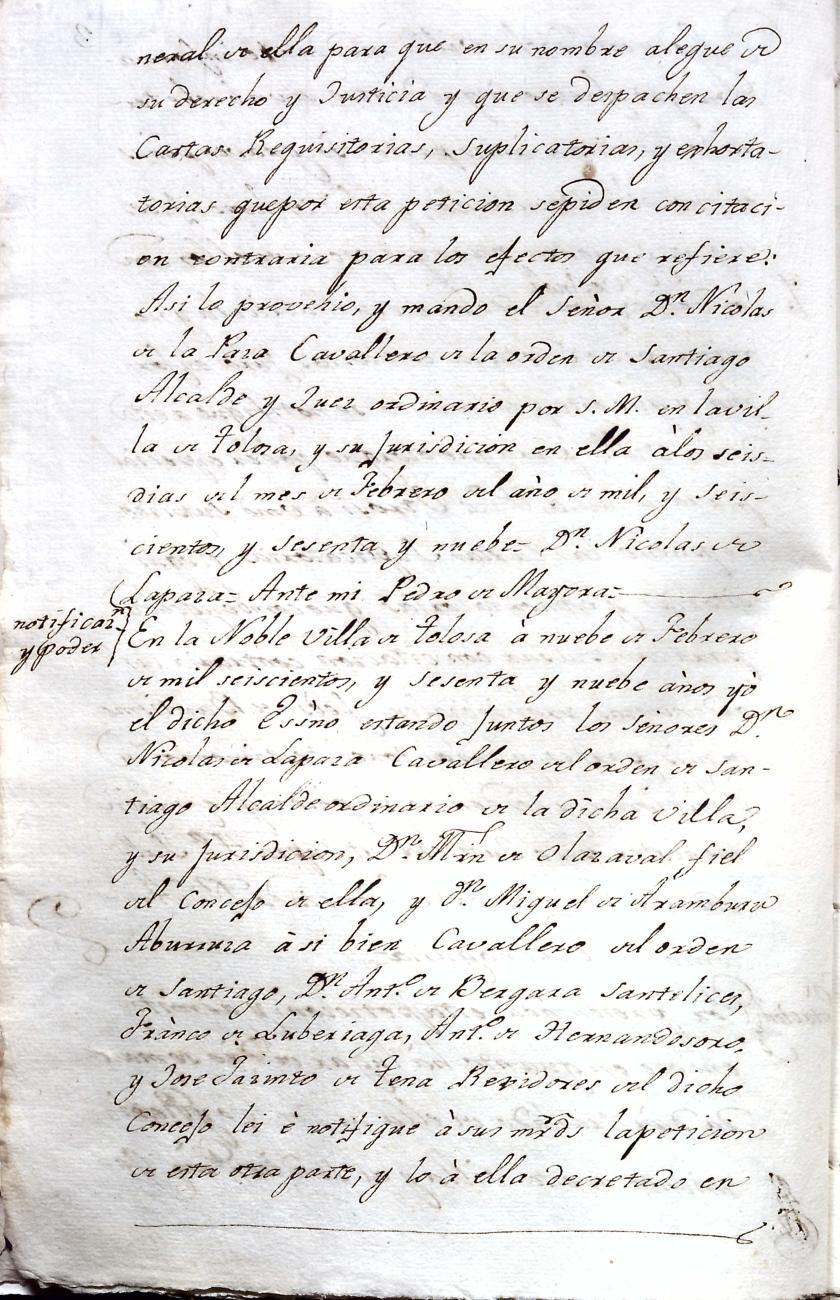 neral de ella para que en su nombre alegue de
su derecho y Justicia y que se despachen las
Cartas Requisitorias, suplicatorias, y exhorta-
torias que por esta peticion se piden con citaci-
on contraria para los efectos que refiere:
Asi lo provehio, y mando el Señor Dn. Nicolas
de la Paza Cavallero de la orden de Santiago
Alcalde y Juez ordinario por S. M. en la vil-
la de Tolosa, y su Jurisdicion en ella à los seis
dias del mes de Febrero del año de mil, y seis-
cientos, y sesenta y nuebe= Dn. Nicolas de
Lapaza= Ante mi Pedro de Mayora=
notificazn
y poder
En la Noble Villa de Tolosa à nuebe de Febrero
de mil seiscientos, y sesenta y nuebe años yò
el dicho Essno estando Juntos los Señores Dn.
Nicolas de Lapaza Cavallero del orden de San-
tiago Alcalde ordinario de la dicha Villa,
y su Jurisdicion, Dn. Mrn de Olazaval fiel
del Concejo de ella, y Dn. Miguel de Aramburu
Aburruza à si bien Cavallero del orden
de Santiago, Dn. Anto. de Bergara Santelices,
Franco de Luberiaga, Anto. de Hernandosoro,
y Jose Jazinto de Tena Rexidores del dicho
Concejo lei è notifique à sus mrds la peticion
de esta otra parte, y lo à ella decretado en